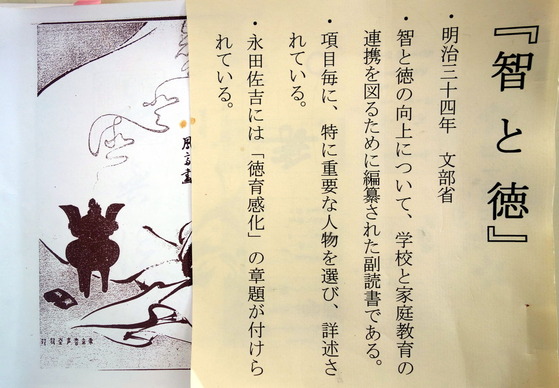 『智と徳』
・明治三十四年　文部省
・智と徳の向上について、学校と家庭教育の
連携を図るために編纂された副読書である。
・項目毎に、特に重要な人物を選び、詳述さ
れている。
・永田佐吉には「徳育感化」の章題が付けら
れている。